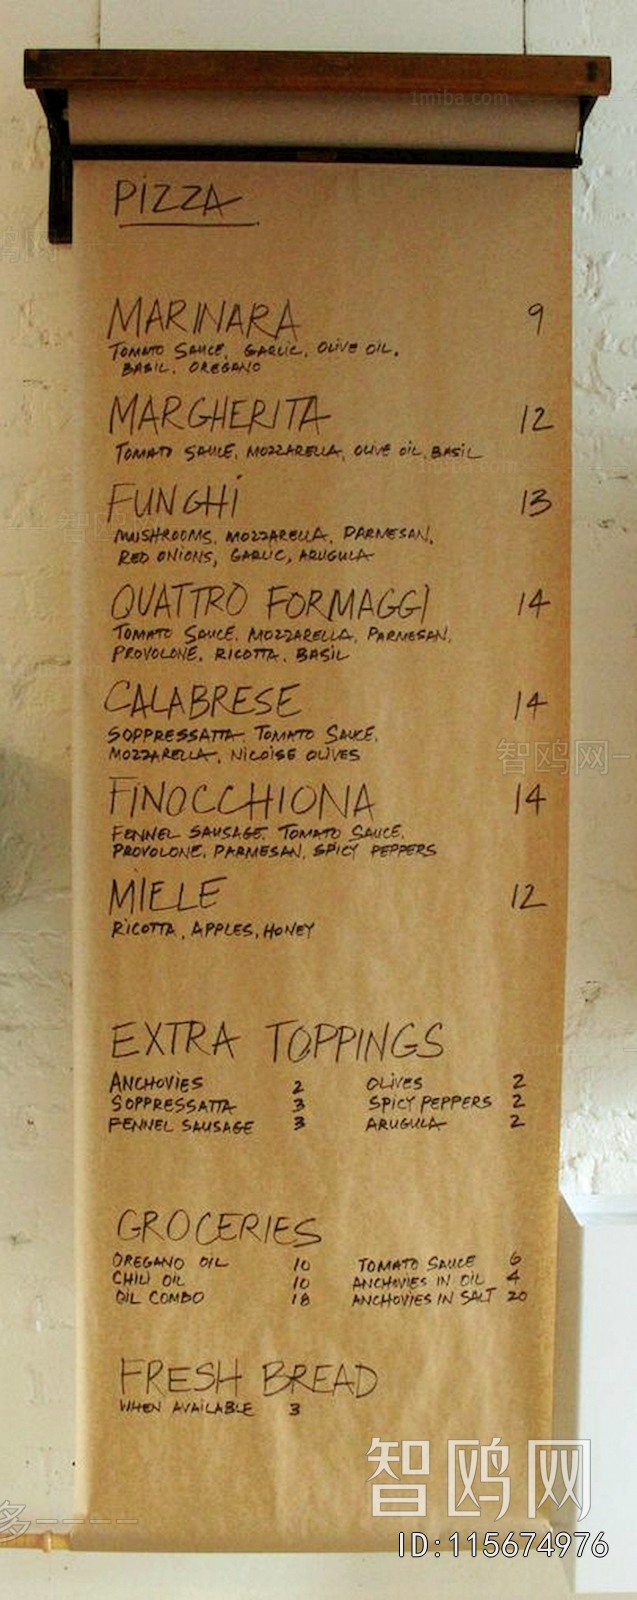 1miba.com
PIZZA
MARINARA 9
TOMATO SAUCE, GARLIC, OLIVE OIL,
BASIL, OREGANO
MARGHERITA 12
TOMATO SAUCE, MOZZARELLA, OLIVE OIL, BASIL
FUNGHI 13
MUSHROOMS, MOZZARELLA, PARMESAN,
RED ONIONS, GARLIC, ARUGULA
QUATTRO FORMAGGI 14
TOMATO SAUCE, MOZZARELLA, PARMESAN,
PROVOLONE, RICOTTA, BASIL
CALABRESE 14
SOPPRESSATTA, TOMATO SAUCE,
MOZZARELLA, NICOISE OLIVES
智鸥网
FINOCCHIONA 14
FENNEL SAUSAGE, TOMATO SAUCE,
PROVOLONE, PARMESAN, SPICY PEPPERS
MIELE 12
RICOTTA, APPLES, HONEY
EXTRA TOPPINGS
ANCHOVIES 2 OLIVES 2
SOPPRESSATTA 3 SPICY PEPPERS 2
FENNEL SAUSAGE 3 ARUGULA 2
GROCERIES
OREGANO OIL 10 TOMATO SAUCE 6
CHILI OIL 10 ANCHOVIES IN OIL 4
OIL COMBO 18 ANCHOVIES IN SALT 20
FRESH BREAD
WHEN AVAILABLE 3
智鸥网
ID:115674976